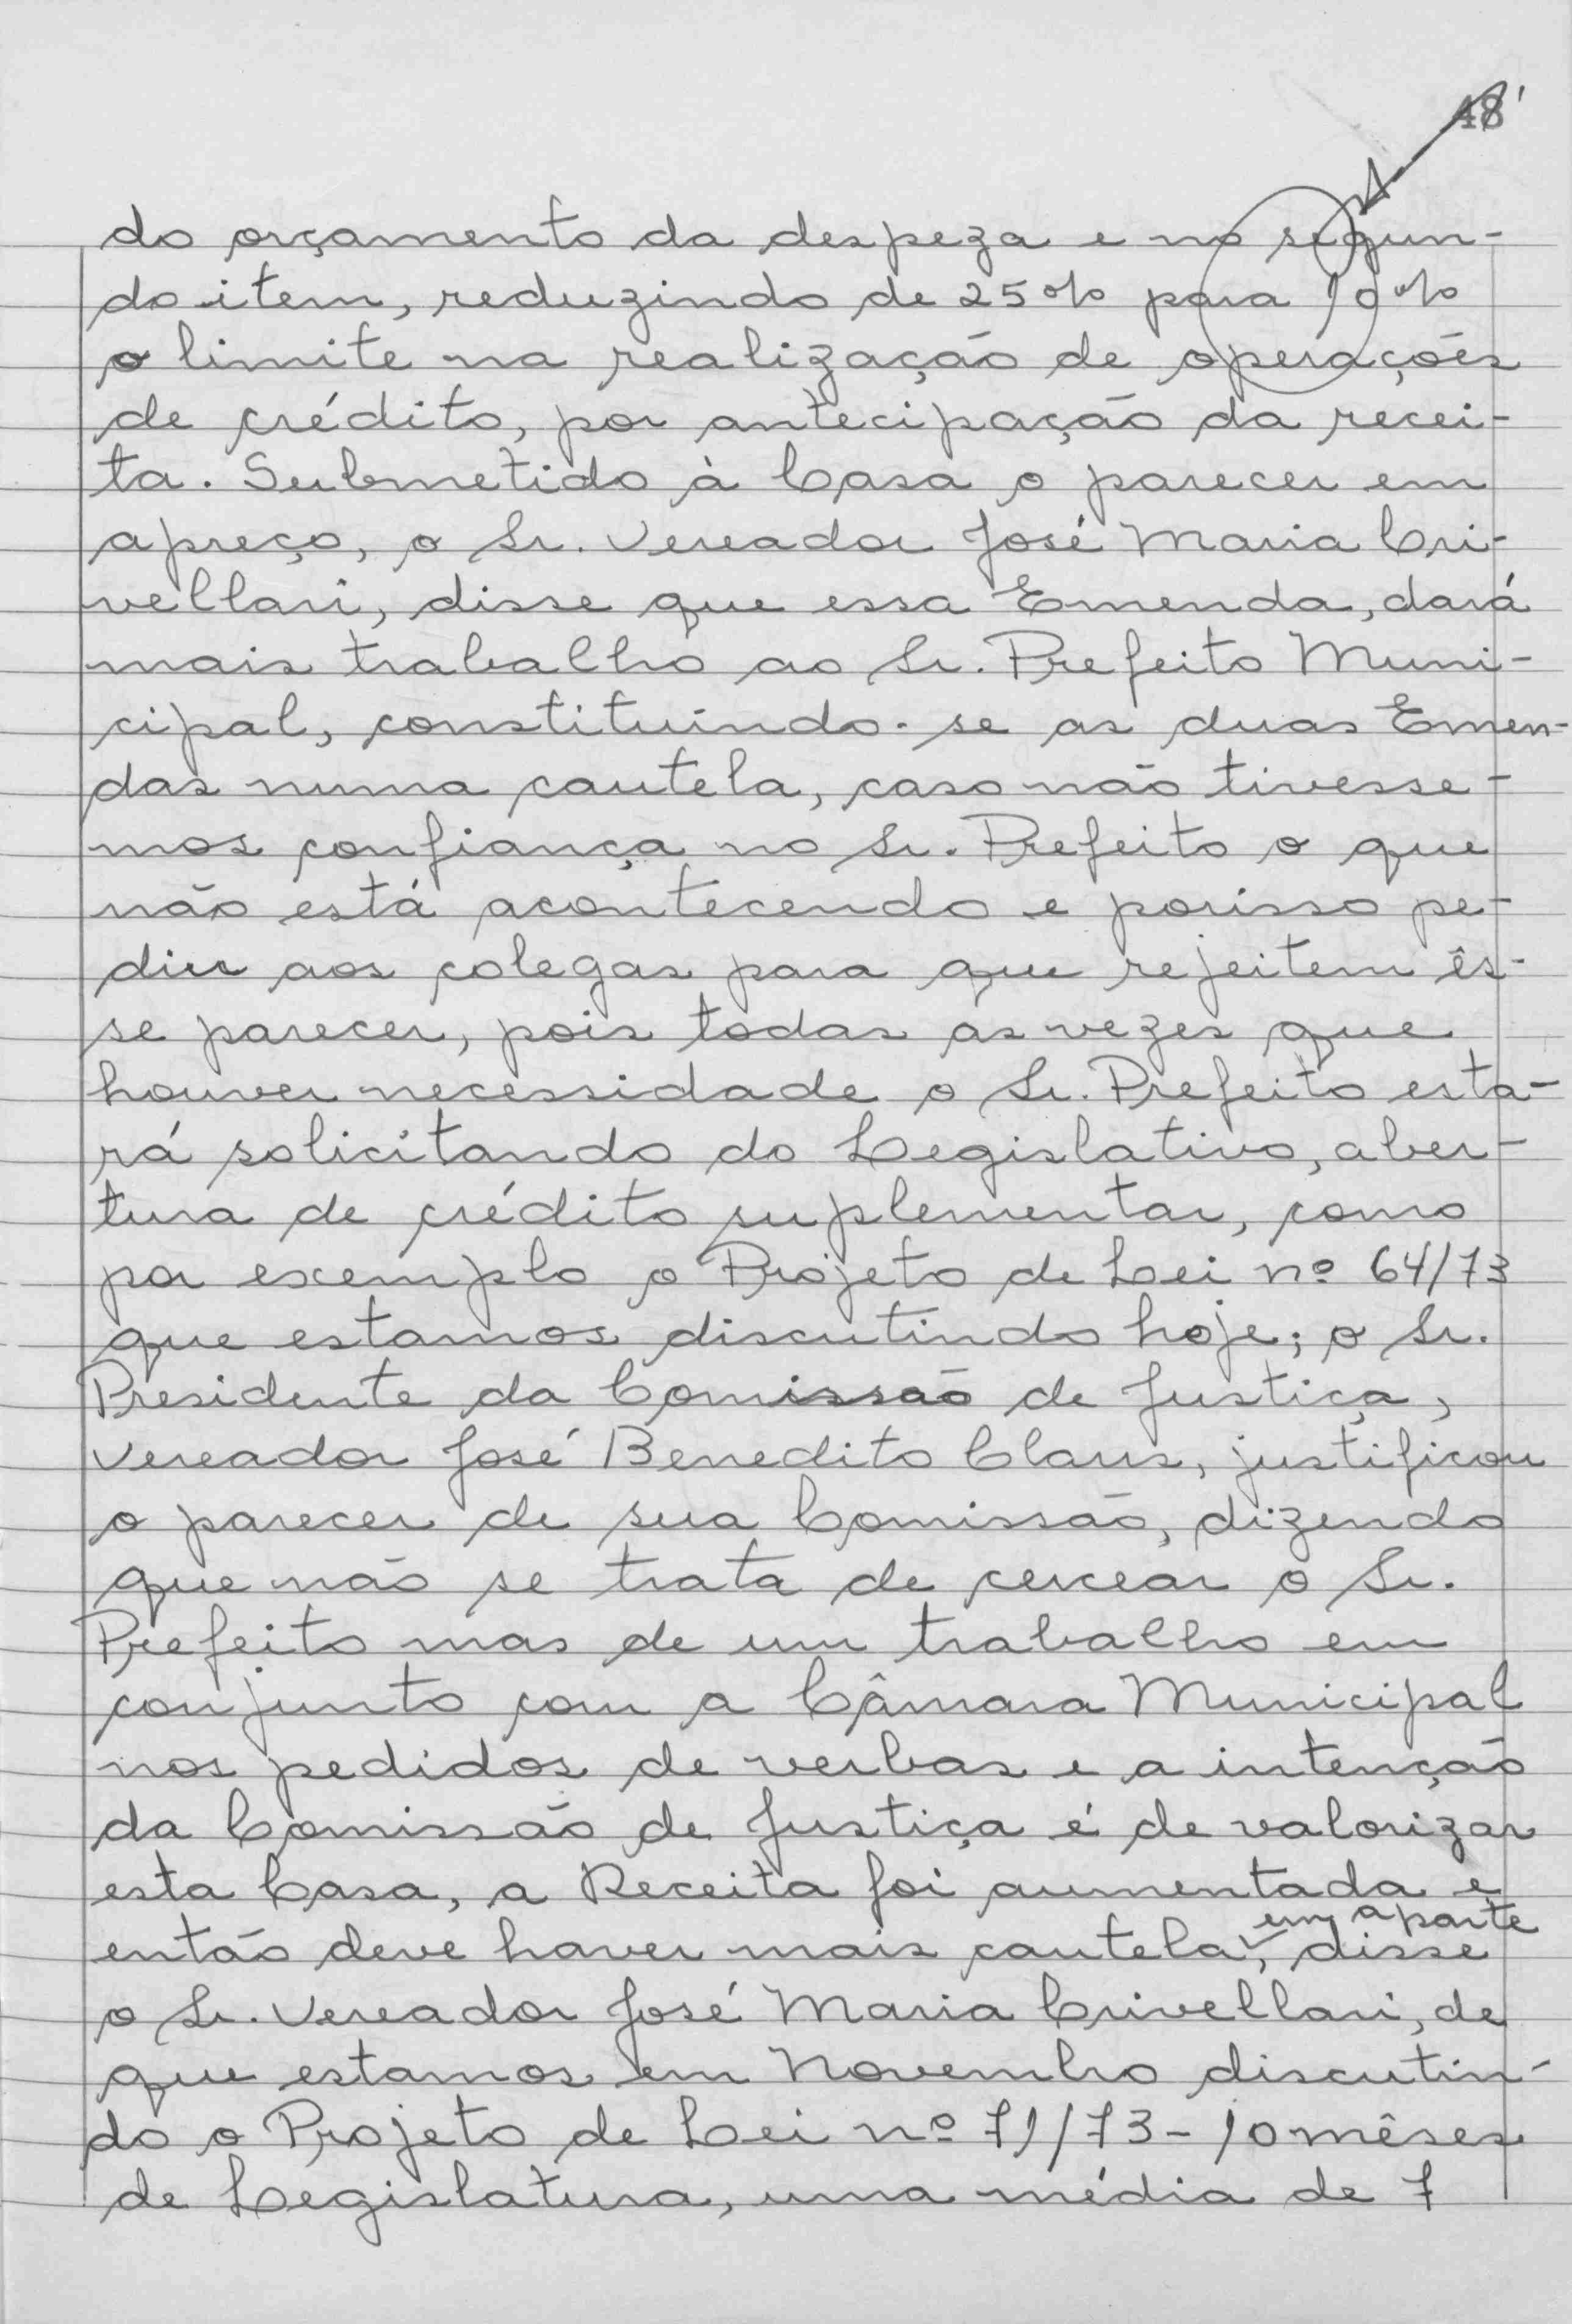 48
do orçamento da despeza e no segun-
do item, reduzindo de 25% para 10%
o limite na realização de operações
de crédito, por antecipação da recei-
ta. Submetido à Casa o parecer em
apreço, o Sr. Vereador José Maria Cri-
vellari, disse que essa Emenda, dará
mais trabalho ao Sr. Prefeito Muni-
cipal, constituindo-se as duas Emen-
das numa cautela, caso não tivesse-
mos confiança no Sr. Prefeito o que
não está acontecendo e porisso pe-
diu aos colegas para que rejeitem ês-
se parecer, pois todas as vezes que
houver necessidade o Sr. Prefeito esta-
rá solicitando do Legislativo, aber-
tura de crédito suplementar, como
por exemplo o Projeto de Lei nº 64/73
que estamos discutindo hoje; o Sr.
Presidente da Comissão de Justiça,
Vereador José Benedito Claus, justificou
o parecer de sua Comissão, dizendo
que não se trata de cercear o Sr.
Prefeito mas de um trabalho em
conjunto com a Câmara Municipal
nos pedidos de verbas e a intenção
da Comissão de Justiça é de valorizar
esta Casa, a Receita foi aumentada e
em aparte
então deve haver mais cautela; disse
o Sr. Vereador José Maria Crivellari, de
que estamos em Novembro discutin-
do o Projeto de Lei nº 71/73 - 10 mêses
de Legislatura, uma média de 7